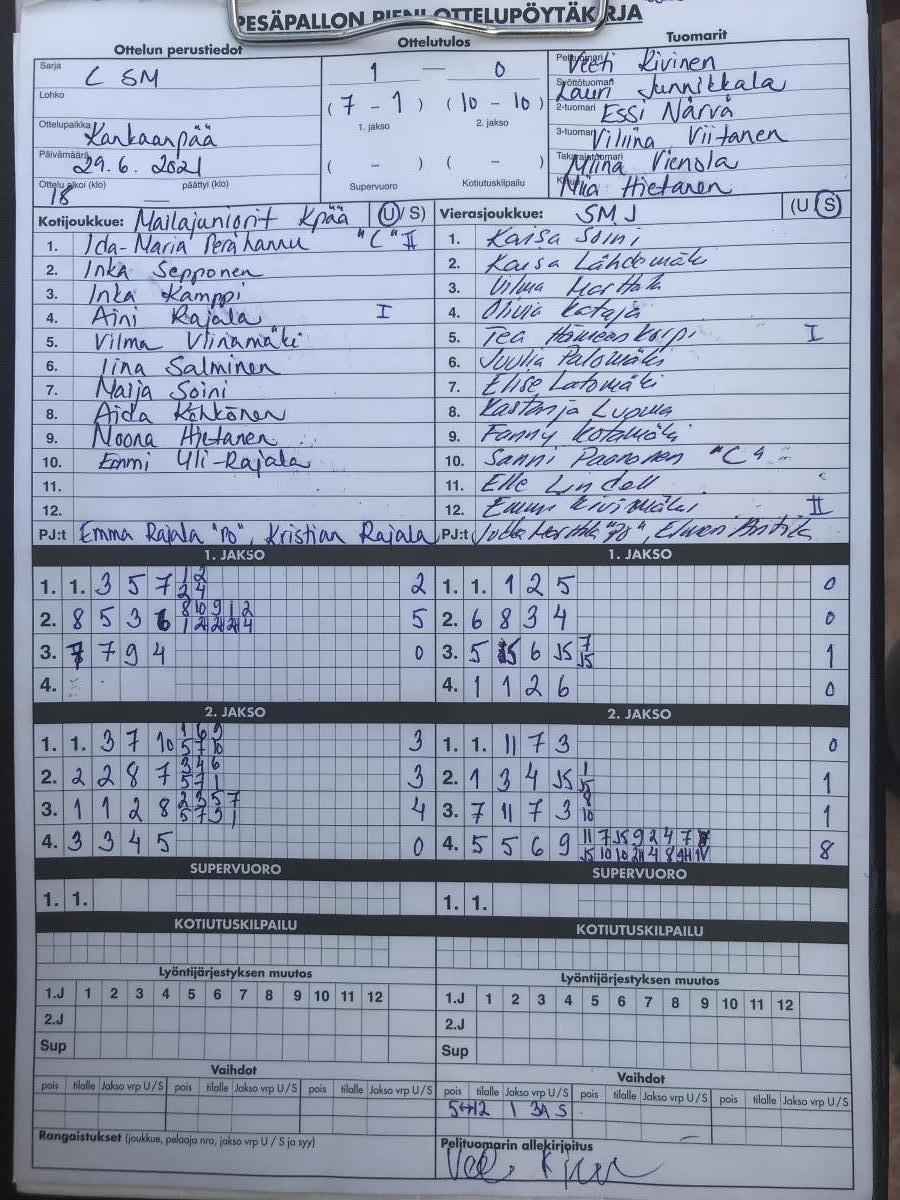 PESÄPALLON PIENI OTTELUPÖYTÄKIRJA
Ottelun perustiedot Ottelutulos Tuomarit
Sarja C SM
Lohko
Ottelupaikka Kankaanpää
Päivämäärä 29.6.2021
Ottelu alkoi (klo) 18 päättyi (klo) —
1 — 0
(7 - 1) (10 - 10)
1. jakso 2. jakso
( - ) ( - )
Supervuoro Kotiutuskilpailu
Pelituomari Veeti Kivinen
Syöttötuomari Lauri Junnikkala
2-tuomari Essi Närvä
3-tuomari Viliina Viitanen
Takarajatuomari Miina Vienola
Niia Hietanen
Kotijoukkue: Mailajuniorit Kpää (U/S)
1. Ida-Maria Perähannu "C" II
2. Inka Sepponen
3. Inka Kamppi
4. Aini Rajala I
5. Vilma Viinamäki
6. Iina Salminen
7. Maija Soini
8. Aida Köhkönen
9. Noona Hietanen
10. Emmi Yli-Rajala
11.
12.
PJ:t Emma Rajala "PO", Kristian Rajala
Vierasjoukkue: SMJ (U/S)
1. Kaisa Soini
2. Kaisa Lähdemäki
3. Vilma Marttala
4. Olivia Kataja
5. Tea Hämeenkorpi I
6. Juulia Palomäki
7. Elise Latomäki
8. Kastanja Luoma
9. Fanny Kotamäki
10. Sanni Paononen "C"
11. Elle Lindell
12. Emmi Kivimäki II
PJ:t
1. JAKSO
1. 1. 3 5 7 1 2 2
2 4
2. 8 5 3 6 8 10 9 1 2 5
3. 7 7 9 4 0
4.
2. JAKSO
1. 1. 3 7 10 1 6 9 3
5 7 10
2. 2 2 8 7 3 4 6 3
5 7 1
3. 1 1 2 8 2 3 5 7 4
5 7 3 1
4. 3 3 4 5 0
SUPERVUORO
1. 1.
KOTIUTUSKILPAILU
Lyöntijärjestyksen muutos
1.J 1 2 3 4 5 6 7 8 9 10 11 12
2.J
Sup
Vaihdot
pois tilalle Jakso vrp U/S pois tilalle Jakso vrp U/S pois tilalle Jakso vrp U/S
Rangaistukset (joukkue, pelaaja nro, jakso vrp U / S ja syy)
1. JAKSO
1. 1. 1 2 5 0
2. 6 8 3 4 0
3. 5 6 J5 7 1
J5
4. 1 1 2 6 0
2. JAKSO
1. 1. 11 7 3 0
2. 1 3 4 J5 1 1
J5
3. 7 11 7 3 8 1
10
4. 5 5 6 9 11 7 J5 9 2 4 7 8
SUPERVUORO
1. 1.
KOTIUTUSKILPAILU
Lyöntijärjestyksen muutos
1.J 1 2 3 4 5 6 7 8 9 10 11 12
2.J
Sup
Vaihdot
pois tilalle Jakso vrp U/S pois tilalle Jakso vrp U/S pois tilalle Jakso vrp U/S
5↔12 1 3A S
Pelituomarin allekirjoitus